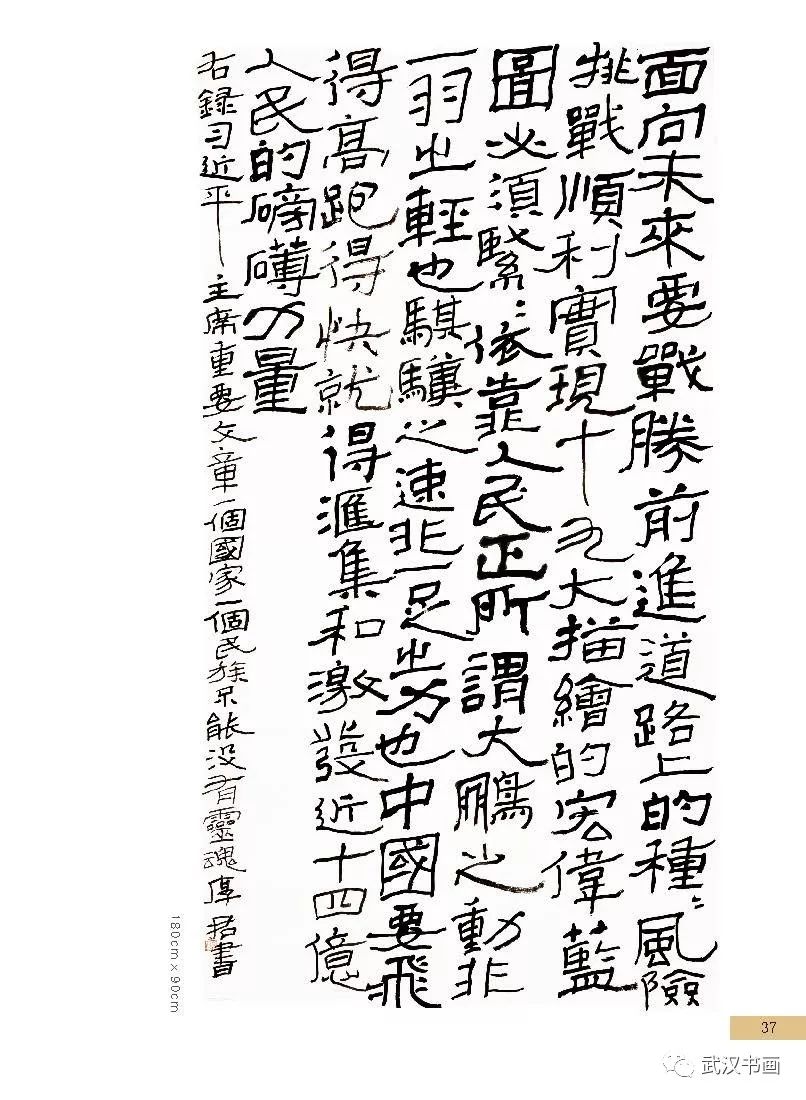 面向未來要戰勝前進道路上的種〻風險
挑戰順利實現十九大描繪的宏偉藍
圖必須緊〻依靠人民正所謂大鵬之動非
一羽之輕也騏驥之速非一足之力也中國要飛
得高跑得快就得滙集和激發近十四億
人民的磅礴力量
右錄习近平主席重要文章一個國家一個民族不能没有靈魂 書
180cm×90cm
37
武汉书画